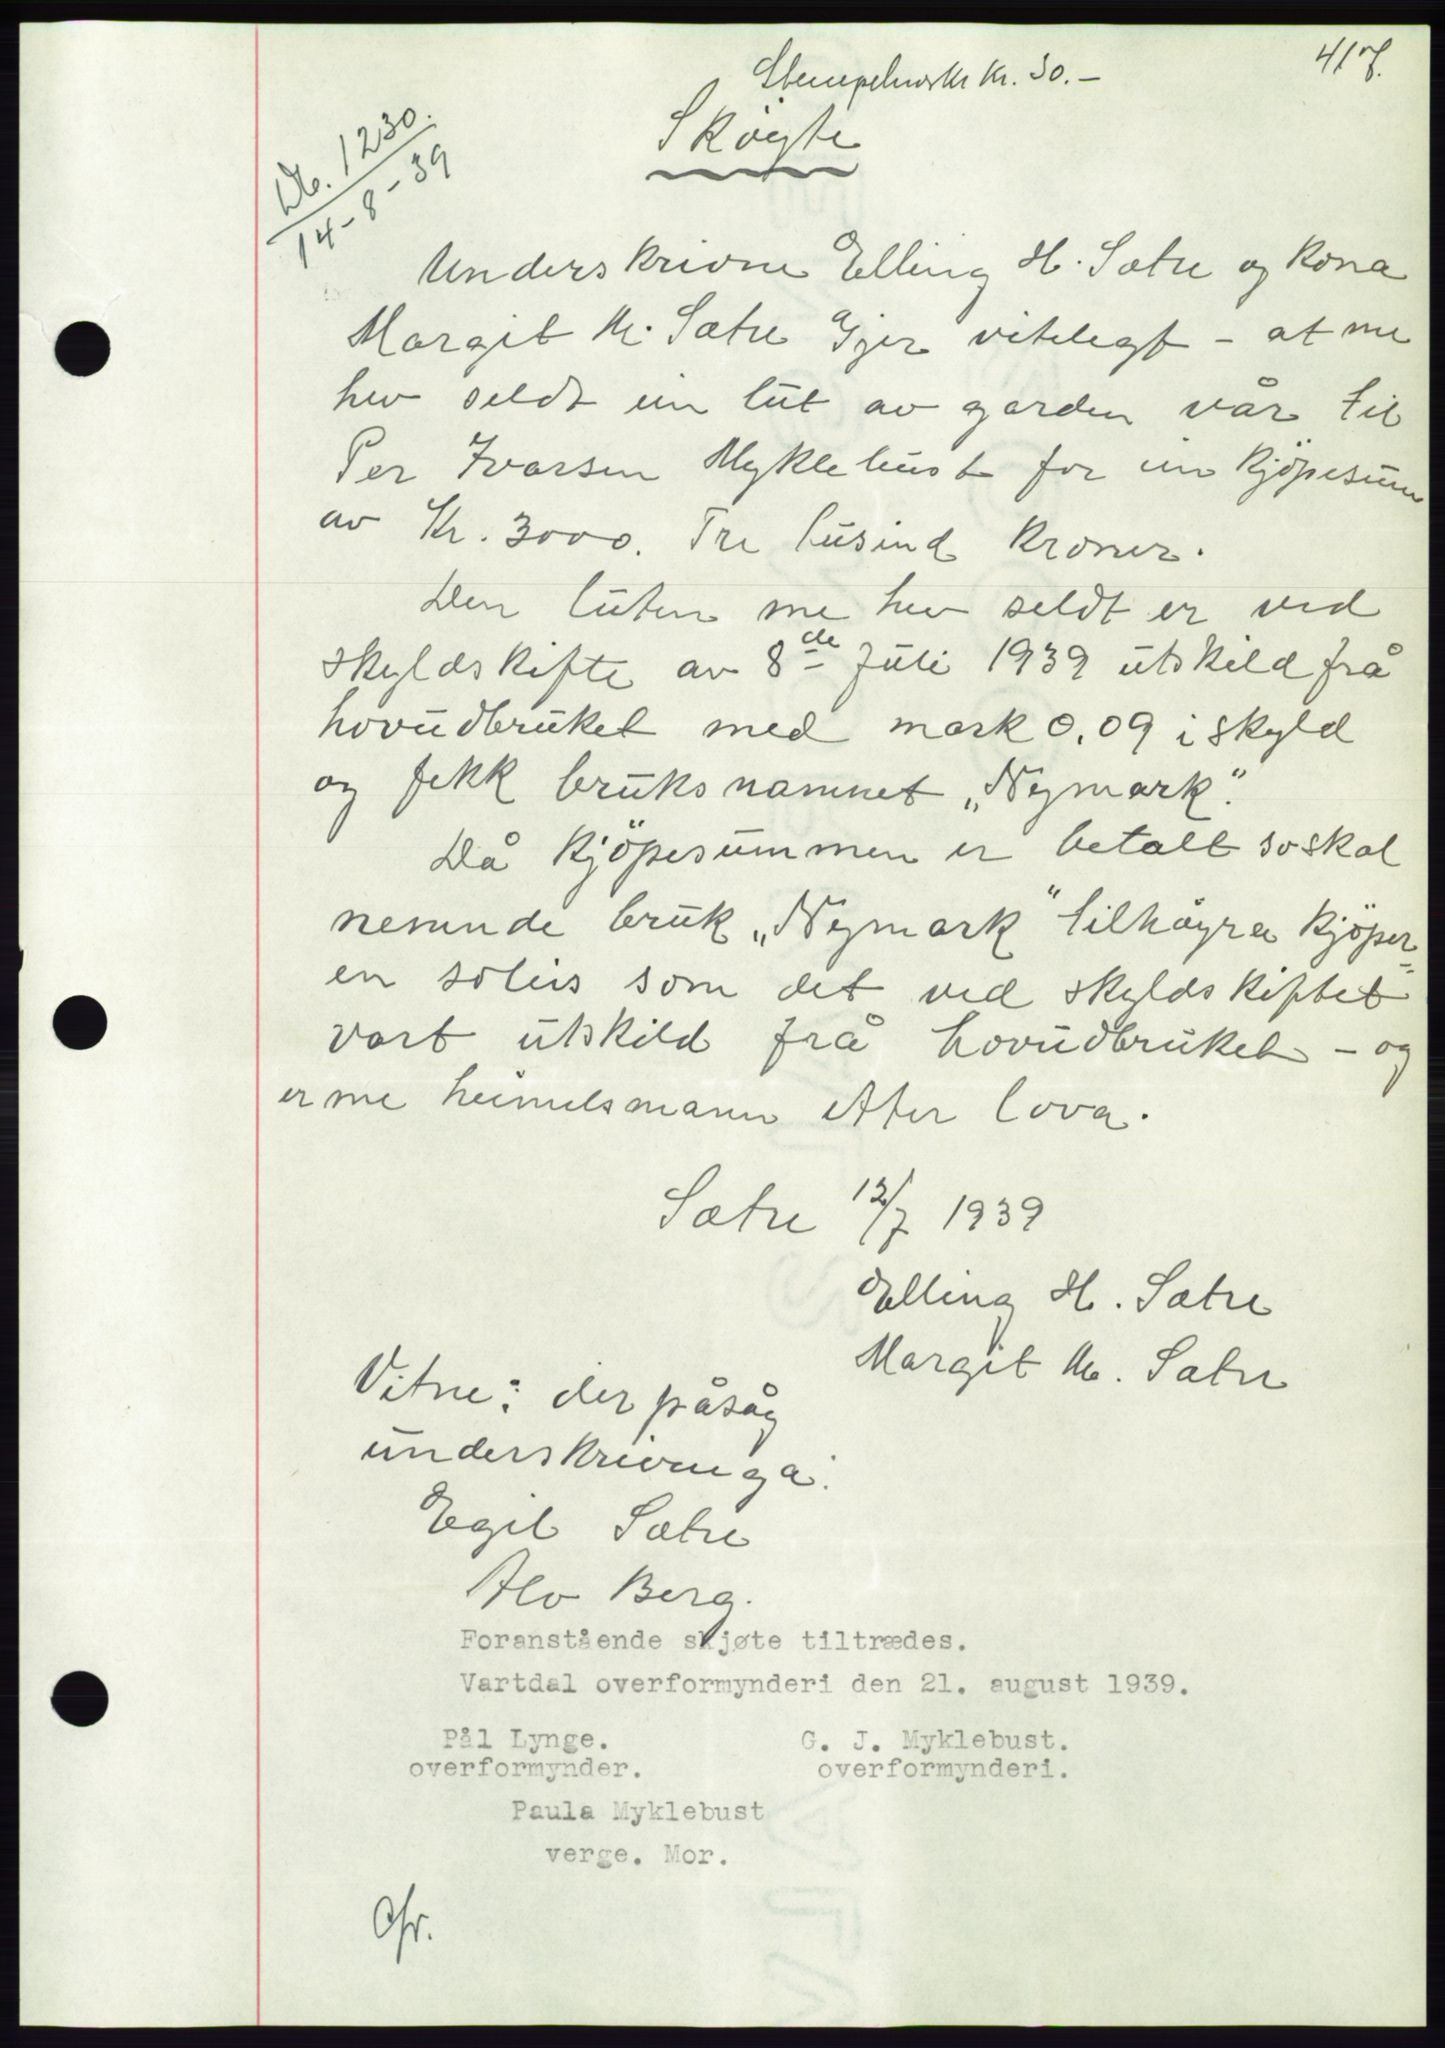 417.
Stempelmerke Kr. 30.-
Skøyte
Db. 1230.
14-8-39
Underskrivne Elling H. Sætre og kona
Margit M. Sætre Gjer vitelegt - at me
hev seldt ein lut av garden vår til
Per Ivarsen Myklebust for ein kjöpesum
av Kr. 3000. Tre tusind Kroner.
Den luten me hev seldt er ved
skyldskifte av 8de Juli 1939 utskild frå
hovudbruket med mark 0,09 i skyld
og fekk bruksnamnet „Nymark".
Då kjöpesummen er betalt so skal
nemnde bruk „Nymark" tilhøyra kjöper-
en soleis som det ved skyldskiftet
vart utskild frå hovudbruket - og
er me heimelsmann etter lova.
Sætre 12/7 1939
Elling H. Sætre
Margit M. Sætre
Vitne: der påsåg
underskrivninga:
Egil Sætre
Alv Berg.
Foranstående skjøte tiltrædes.
Vartdal overformynderi den 21. august 1939.
Pål Lynge. G. J. Myklebust.
overformynder. overformynderi.
Paula Myklebust
verge. Mor.